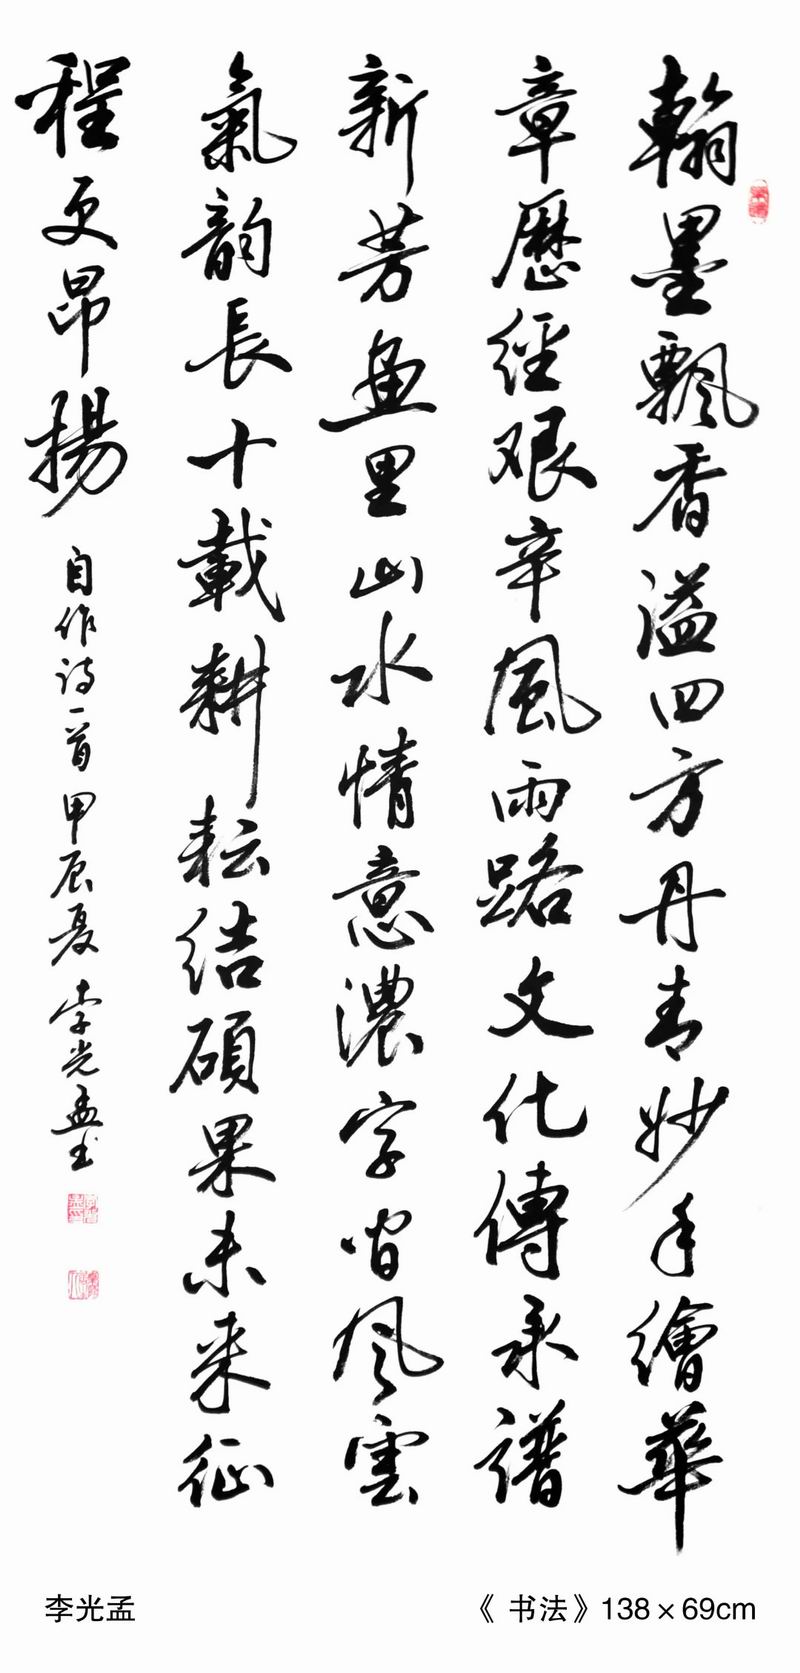 翰墨飄香溢四方丹青妙手繪華
章歷經艱辛風雨路文化傳承譜
新芳畫里山水情意濃字間風雲
氣韵長十載耕耘結碩果未来征
程更昂揚
自作詩一首甲辰夏李光孟书
李光孟
《 书法》138×69cm